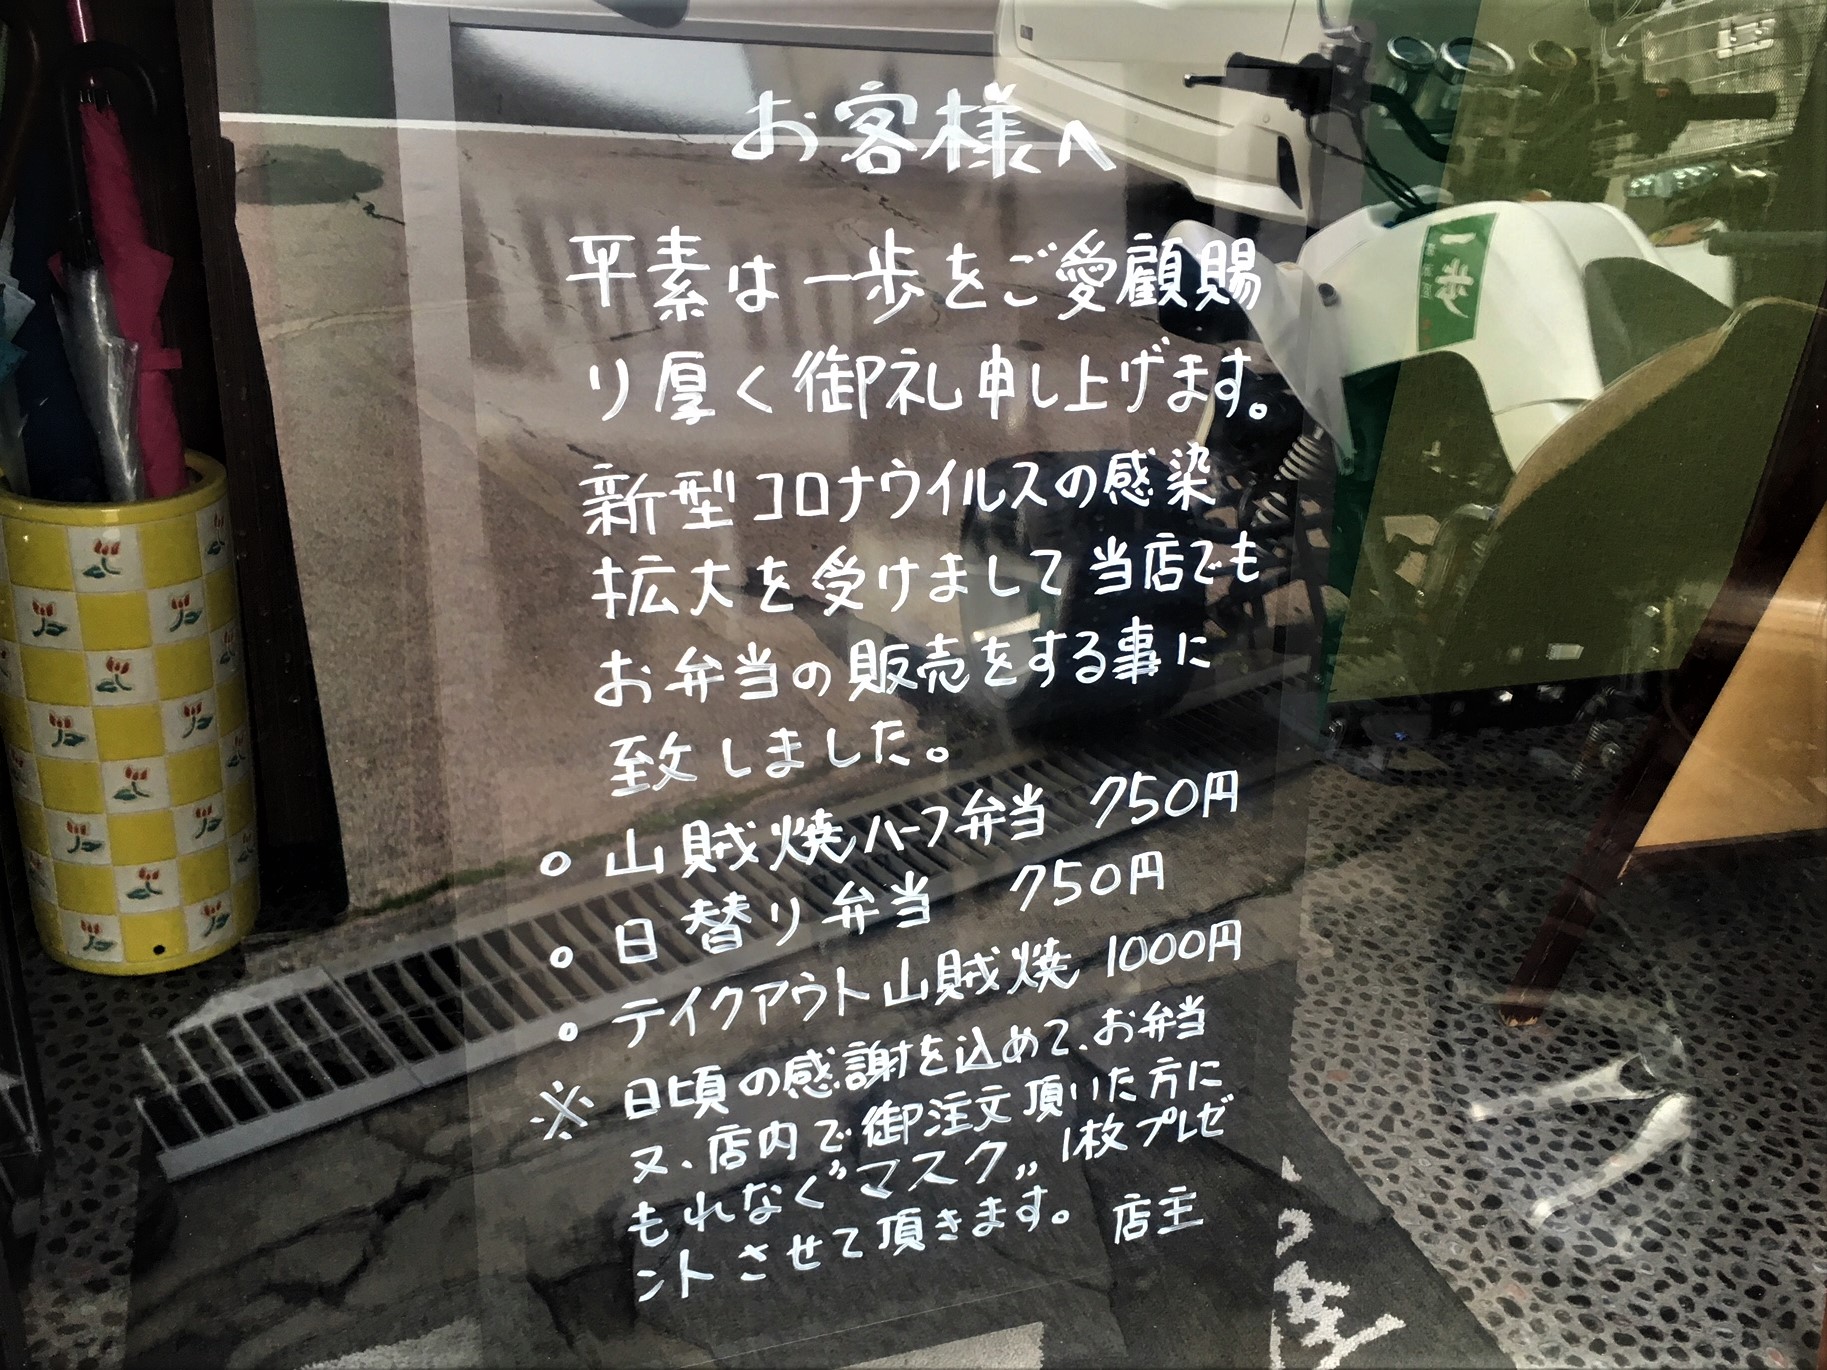 お客様へ
平素は一歩をご愛顧賜
り厚く御礼申し上げます。
新型コロナウイルスの感染
拡大を受けまして当店でも
お弁当の販売をする事に
致しました。
○ 山賊焼ハーフ弁当 750円
○ 日替り弁当 750円
○ テイクアウト山賊焼 1000円
※ 日頃の感謝を込めて、お弁当
又、店内で御注文頂いた方に
もれなく“マスク„ 1枚プレゼ
ントさせて頂きます。 店主
一歩